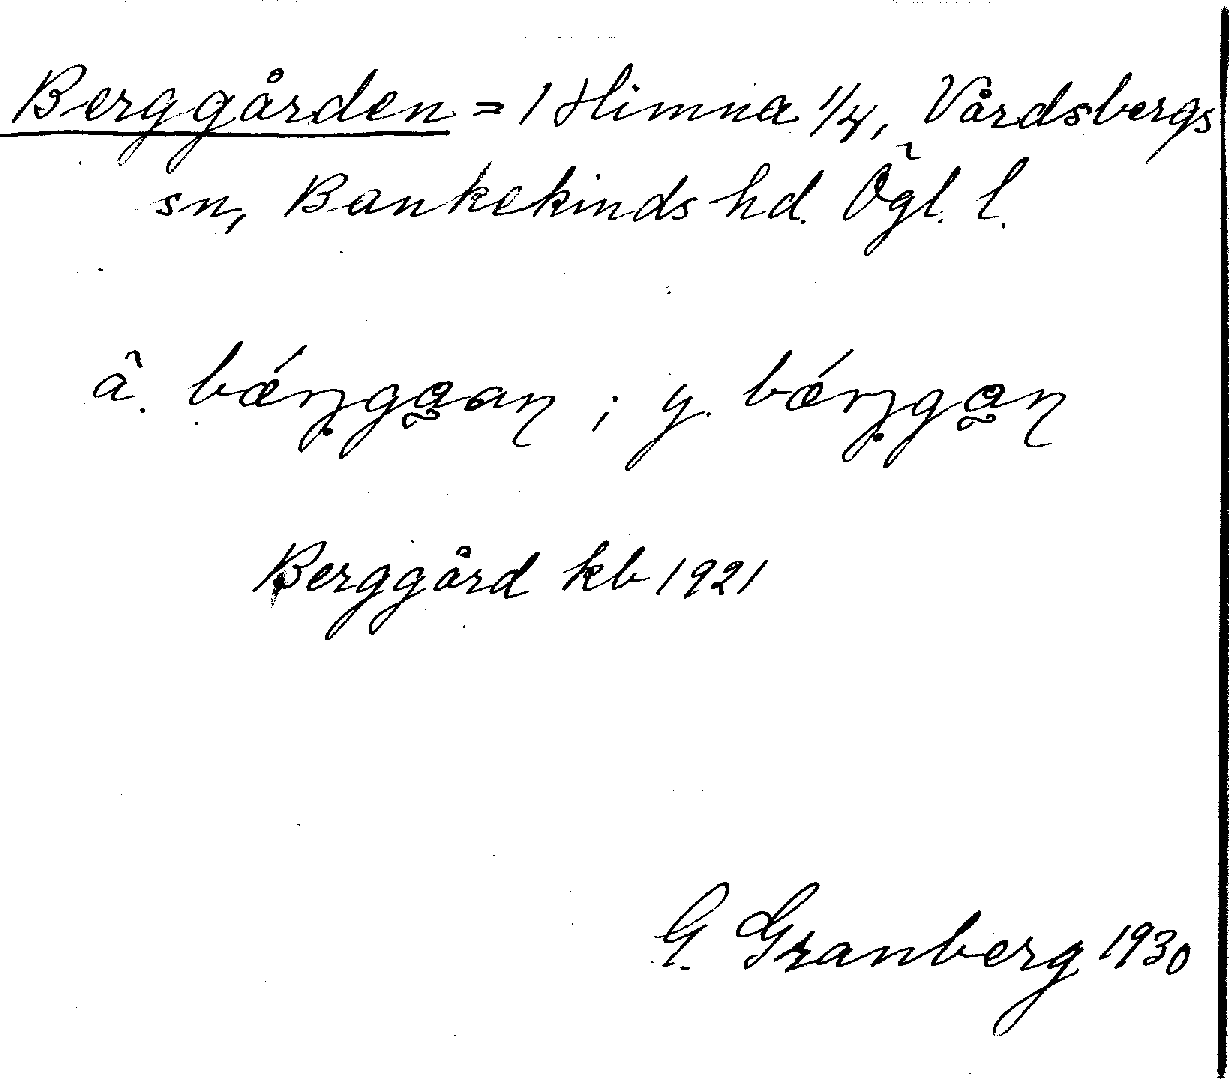 Berggården = 1 Himna 1/4, Vårdsbergs
sn, Bankekinds hd. Ögl. l.
ä. ; y.
Berggård kb 1921
G. Granberg 1930